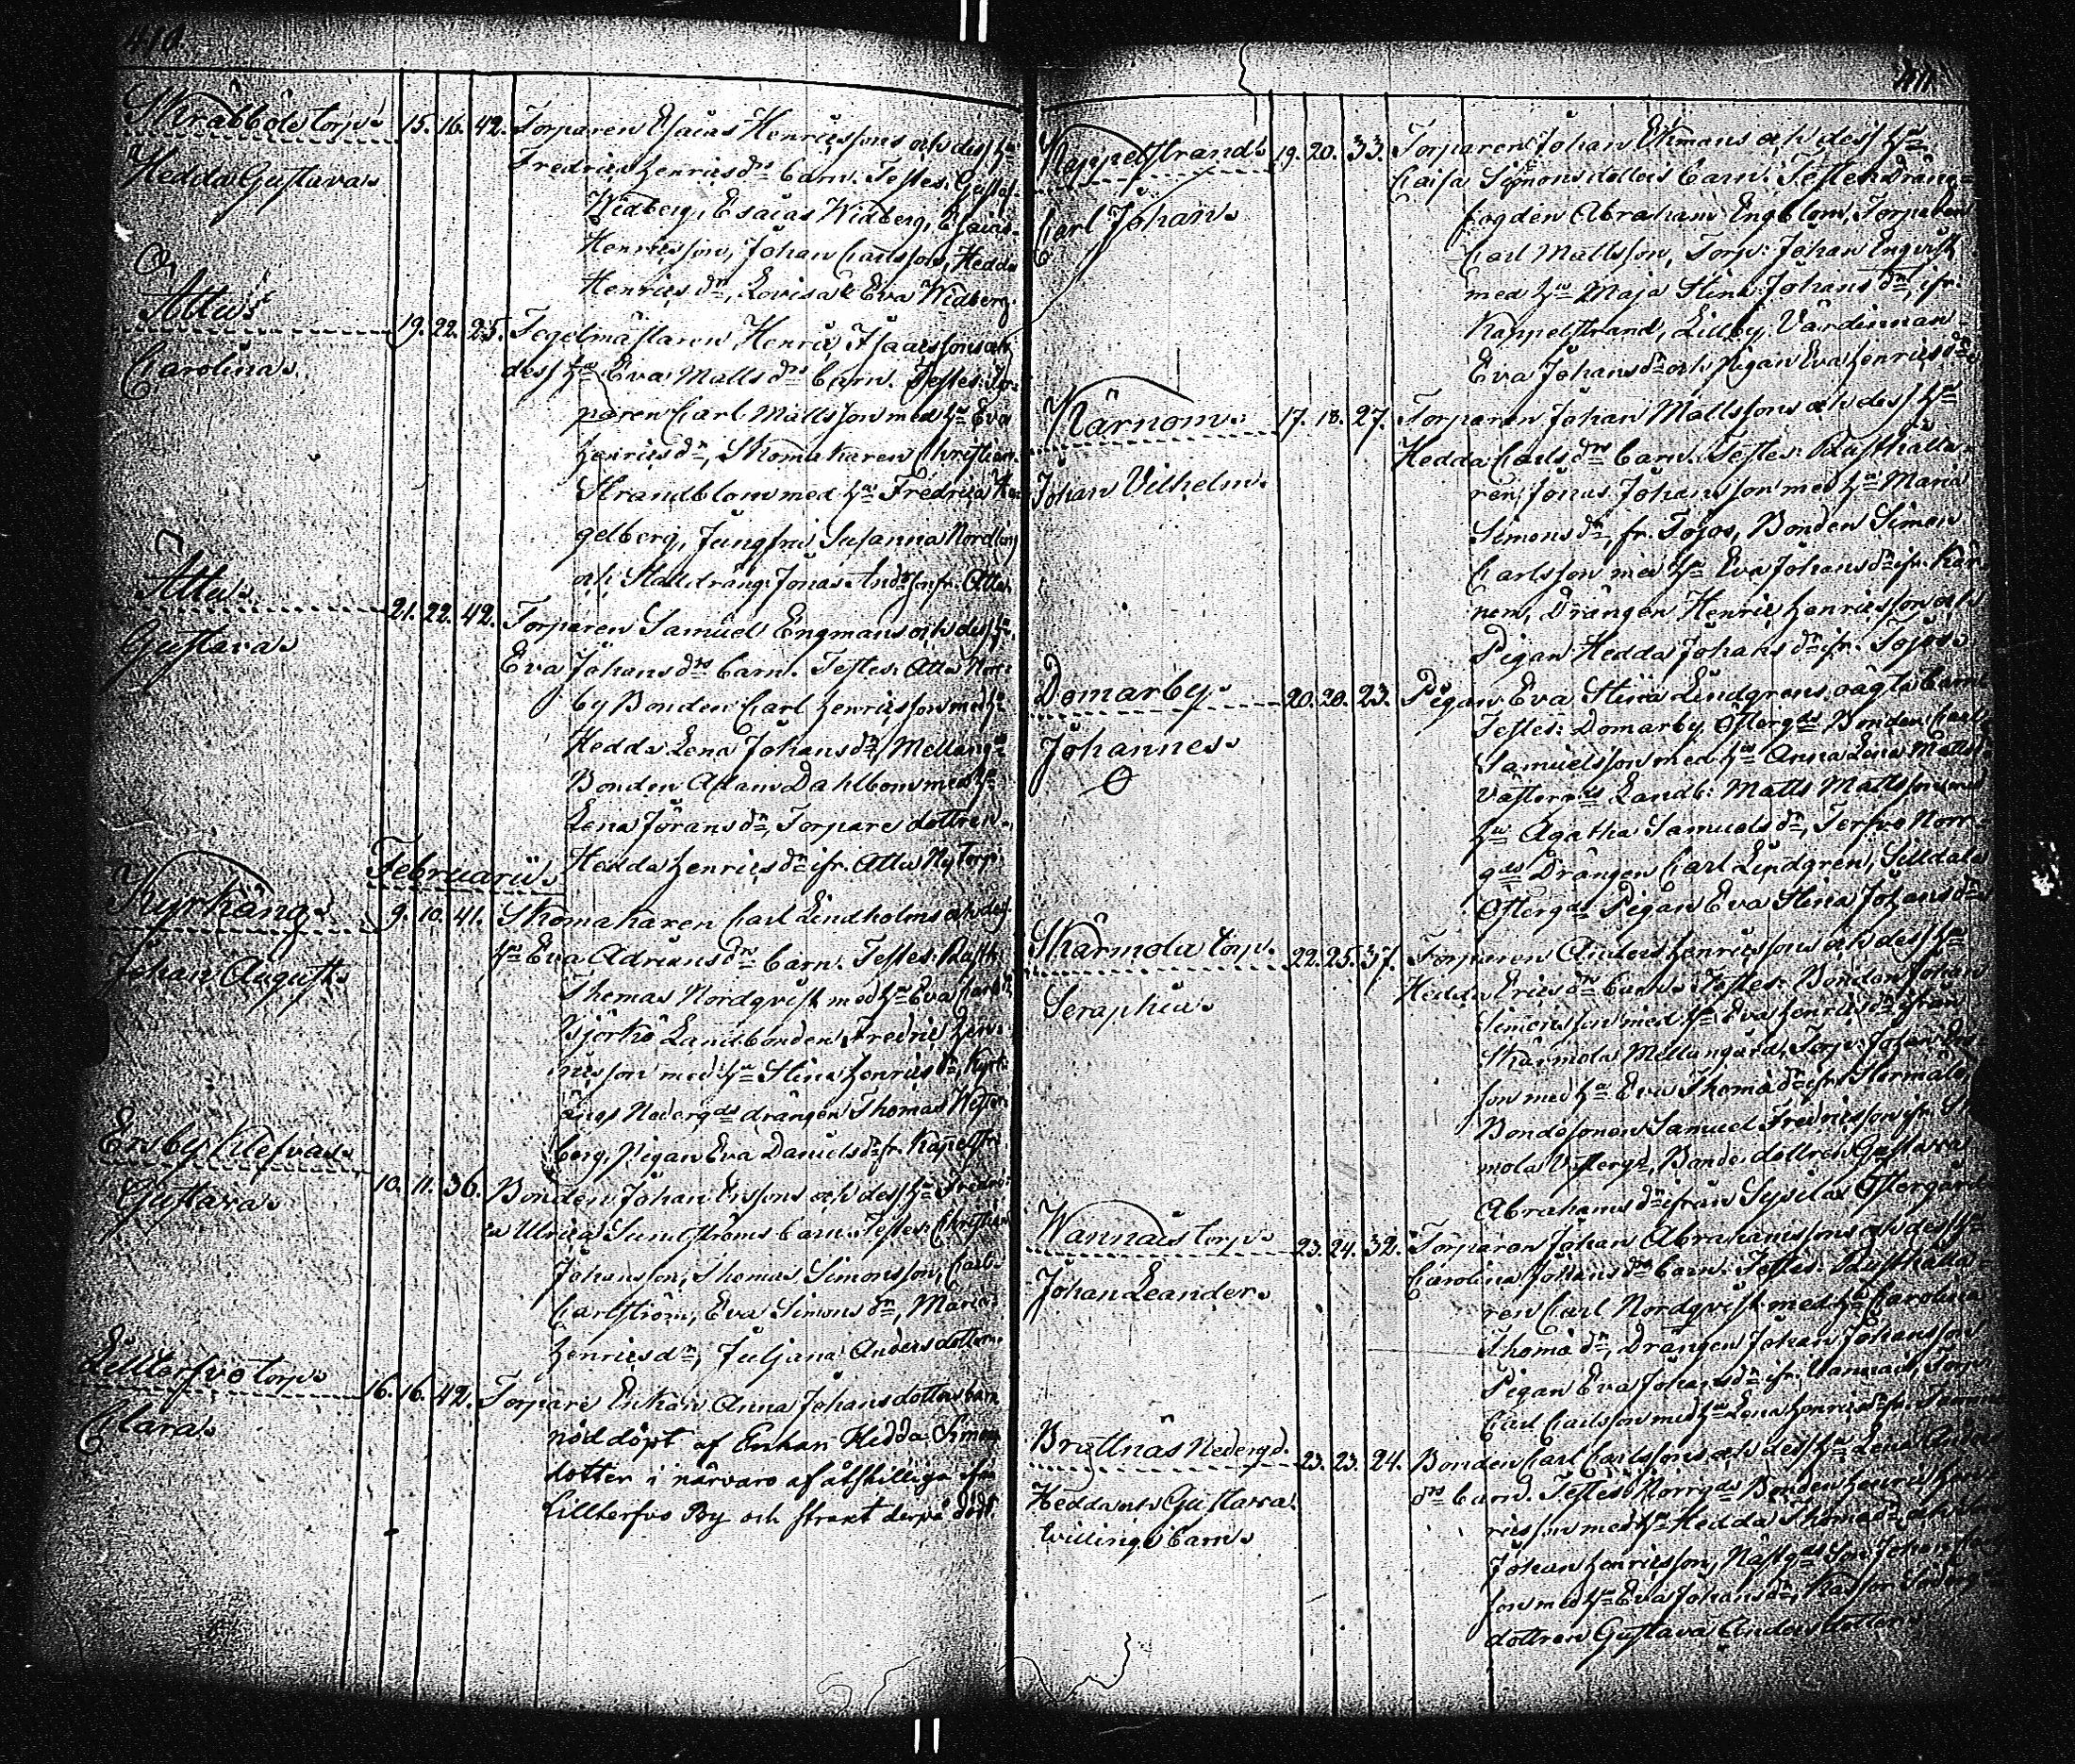 410.
Skråbböle torp. 15. 16. 42. Torparen Esaias Henricssons och dess h:u
Hedda Gustava. Fredrica Henricsd:rs barn. Testes: Gustaf
Widberg, Esaias Widberg, Esaias
Henricsson, Johan Carlsson, Hedda
Henricsd:r, Lovisa & Eva Widberg.
Attu. 19. 22. 25. Tegelmästaren Henric Isaacssons och
Carolina. dess h:u Eva Mattsd:rs barn. Testes: Tor-
paren Carl Mattsson med h:u Eva
Henricsd:r, Skomakaren Christian
Strandblom med h:u Fredrica
gelberg, Jungfru Susanna
och Stalldräng: Jonas fr. Attu.
Attu. 21. 22. 42. Torparen Samuel Engmans och dess h:u
Gustava. Eva Johansd:rs barn. Testes: Attu Norr-
by Bonden Carl Henricsson med h:u
Hedda Lena Johansd:r, Mellang:ds
Bonden Adam Dahlbom med h:u
Lena Jöransd:r, Torpare dottren
Hedda Henricsd:r ifr. Attu Nytorp.
Februarii.
Kyrkäng. 9. 10. 41. Skomakaren Carl Lindholms och dess
Johan August. h:u Eva Adriansd:rs barn. Testes: Rusth.
Thomas Nordqvist med h:u Eva
Björkö Landbonden Fredric Hen-
ricsson med h:u Stina Henricsd:r, Kyrk-
ängs Nederg:ds drängen Thomas Wester-
berg, Pigan Eva Danielsd:r fr. Kapellstr.
Ersby Klefvas. 10. 11. 36. Bonden Johan Erssons och dess h:u Fredri-
Gustava. ca Ulrica Sundströms barn. Testes: Christian
Johansson, Thomas Simonsson, Carl
Carlström, Eva Simonsd:r, Maria
Henricsd:r, Juljana Andersdotter.
Lillterfvo torp. 16. 16. 42. Torpare Enkan Anna Johansdotters barn
Clara. nöddöpt af Enkan Hedda Simons
dotter i närvaro af åtskilliga ifrån
Lillterfvo By och straxt derpå död.
411.
Kappelstrand. 19. 20. 33. Torparen Johan Ekmans och dess h:u
Carl Johan. Caisa Simonsdotters barn. Testes: Dräng-
fogden Abraham Engblom, Torparen
Carl Mattsson, Torp: Johan Enqvist
med h:u Maja Stina Johansd:r, ifr.
Kappelstrand, Lillby Värdinnan
Eva Johansd:r och Pigan Eva Henricsd:r.
Kärnom. 17. 18. 27. Torparen Johan Mattssons och dess h:u
Johan Vilhelm. Hedda Carlsd:rs barn. Testes: Rusthålla-
ren Jonas Johansson med h:u Maria
Simonsd:r, fr. Tojos, Bonden Simon
Carlsson med h:u Eva Johansd:r ifr. Kär-
nom, Drängen Henric Henricsson och
Pigan Hedda Johansd:r ifr. Tojos.
Domarby. 20. 20. 23. Pigan Eva Stina Lindgrens oägta barn.
Johannes. Testes: Domarby Östergds Bonden Carl
Samuelsson med h:u Anna Lena Mattsd:r
Västerg:ds Landb: Matts Mattsson med
h:u Agatha Samuelsd:r, Terfvo Norr-
g:ds Drängen Carl Lindgren, Silldala
Österg:ds Pigan Eva Stina Johansd:r.
Skärmola torp. 22. 25. 37. Torparen Anders Henricssons och dess h:u
Seraphia. Hedda Ericsd:rs barn. Testes: Bonden Johan
Simonsson med h:u Eva Henricsd:r ifrån
Skärmola Mellangård, Torp: Johan
son med h:u Eva Thomæd:r ifr.
Bondesonen Samuel Fredricsson ifr. Skär-
mola Västerg:d, Bonde dottren Gustava
Abrahamsd:r ifrån Sysilax Östergård.
Wannais torp. 23. 24. 32. Torparen Johan Abrahamssons och dess h:u
Johan Leander. Carolina Johansd:rs barn. Testes: Rusthålla-
ren Carl Nordqvist med h:u Carolina
Thomæd:r, Drängen Johan Johansson
Pigan Eva Johansd:r ifr. Vannais, Torp:
Carl Carlsson med h:u Lena Henricsd:r
Brattnäs Nederg:d. 23. 23. 24. Bonden Carl Carlssons och dess h:u Lena Anders
Hedda och Gustava. d:rs barn. Testes: Norrg:ds Bonden Henric Hen-
tvillings barn. ricsson med h:u Hedda Thomæd:r och
Johan Henricsson, Johan
son med h:u Eva Johansd:r,
dottren Gustava Andersdotter.